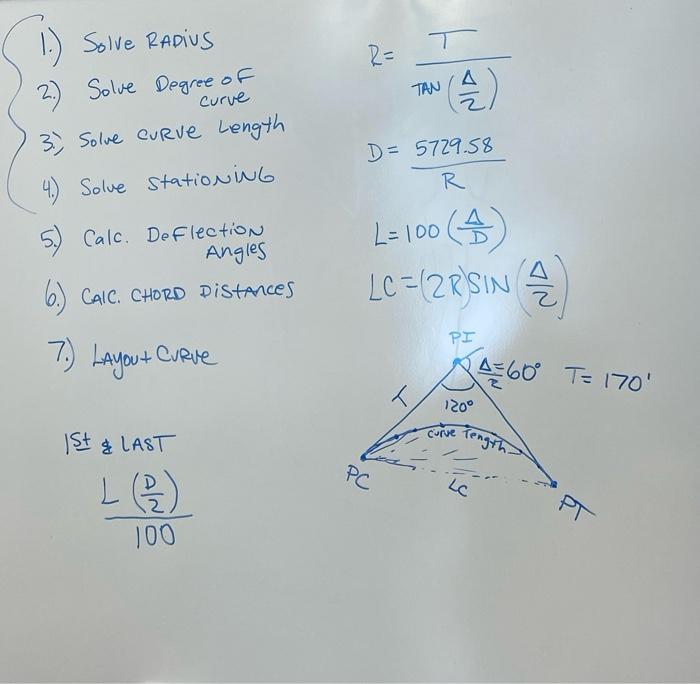 1.) Solve RADIUS
2.) Solve Degree of
curve
3.) Solve CURVE Length
4.) Solve StationiNG
5.) Calc. Deflection
Angles
6.) CALC. CHORD DistANCES
7.) LAyout CURVE
1st & LAST
L (D/2)
100
R = T / TAN (Δ/2)
D = 5729.58 / R
L = 100 (Δ/D)
LC = (2R) SIN (Δ/2)
PI
Δ/2 = 60° T = 170'
T
120°
curve Length
PC
LC
PT